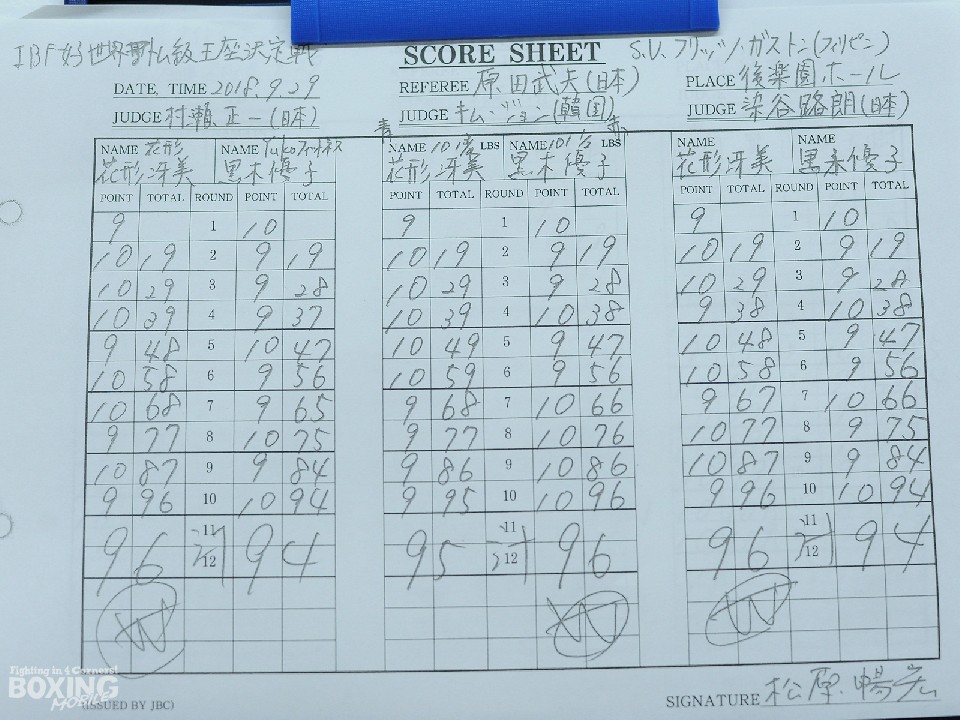 IBF女子世界アトム級王座決定戦
SCORE SHEET
S.V. フリッツ・ガストン(フィリピン)
DATE, TIME 2018.9.29
REFEREE 原田武夫(日本)
PLACE 後楽園ホール
JUDGE 村瀬正一(日本)
JUDGE キム・ジョン(韓国)
JUDGE 染谷路朗(日本)
青 赤
NAME 花形 NAME Yuko
花形冴美 黒木優子
POINT TOTAL ROUND POINT TOTAL
9 1 10
10 19 2 9 19
10 29 3 9 28
10 39 4 9 37
9 48 5 10 47
10 58 6 9 56
10 68 7 9 65
9 77 8 10 75
10 87 9 9 84
9 96 10 10 94
11
96 12 94
W
NAME 101 LBS NAME 101 LBS
花形冴美 黒木優子
POINT TOTAL ROUND POINT TOTAL
9 1 10
10 19 2 9 19
10 29 3 9 28
10 39 4 10 38
10 49 5 9 47
10 59 6 9 56
9 68 7 10 66
9 77 8 10 76
9 86 9 10 86
9 95 10 10 96
11
95 12 96
W
NAME NAME
花形冴美 黒木優子
POINT TOTAL ROUND POINT TOTAL
9 1 10
10 19 2 9 19
10 29 3 9 28
9 38 4 10 38
10 48 5 9 47
10 58 6 9 56
9 67 7 10 66
10 77 8 9 75
10 87 9 9 84
9 96 10 10 94
11
96 12 94
W
Fighting in 4 Corners!
BOXING
MOBILE
(ISSUED BY JBC)
SIGNATURE 松原暢宏